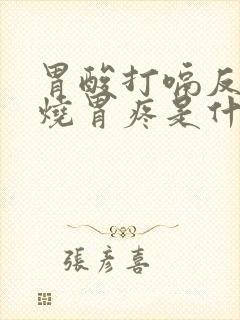 胃酸打嗝反
燒胃疼是什
張彥喜